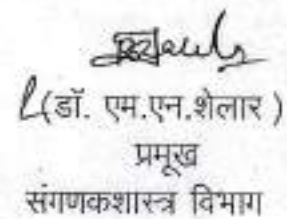 (डॉ. एम.एन.शेलार )
प्रमुख
संगणकशास्त्र विभाग